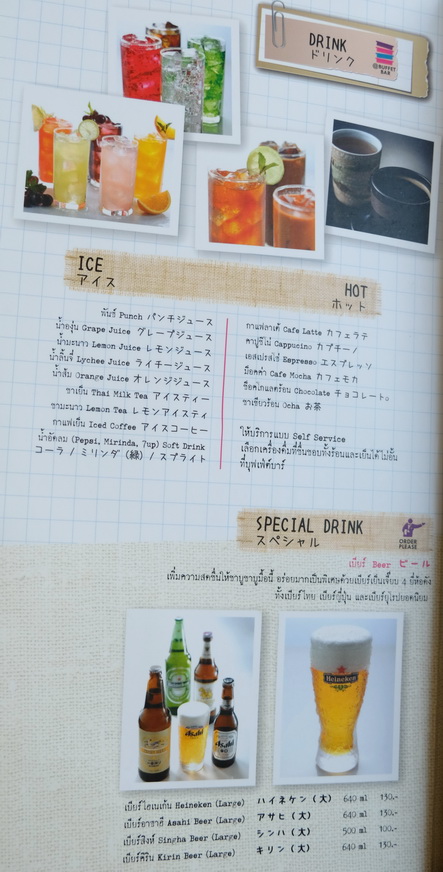 DRINK
ドリンク
@BUFFET
BAR
ICE
アイス
พันช์ Punch パンチジュース
น้ำองุ่น Grape Juice グレープジュース
น้ำมะนาว Lemon Juice レモンジュース
น้ำลิ้นจี่ Lychee Juice ライチージュース
น้ำส้ม Orange Juice オレンジジュース
ชาเย็น Thai Milk Tea アイスティー
ชามะนาว Lemon Tea レモンアイスティ
กาแฟเย็น Iced Coffee アイスコーヒー
น้ำอัดลม (Pepsi, Mirinda, 7up) Soft Drink
コーラ / ミリンダ (緑) / スプライト
HOT
ホット
กาแฟลาเต้ Cafe Latte カフェラテ
คาปูชิโน่ Cappucino カプチーノ
เอสเปรสโซ่ Espresso エスプレッソ
ม็อคค่า Cafe Mocha カフェモカ
ช็อคโกแลตร้อน Chocolate チョコレート。
ชาเขียวร้อน Ocha お茶
ให้บริการแบบ Self Service
เลือกเครื่องดื่มที่ชื่นชอบทั้งร้อนและเย็นได้ไม่อั้น
ที่บุฟเฟ่ต์บาร์
SPECIAL DRINK
スペシャル
ORDER
PLEASE
เบียร์ Beer ビール
เพิ่มความสดชื่นให้ชาบูชาบูมื้อนี้ อร่อยมากเป็นพิเศษด้วยเบียร์เย็นเจี๊ยบ 4 ยี่ห้อดัง
ทั้งเบียร์ไทย เบียร์ญี่ปุ่น และเบียร์ยุโรปยอดนิยม
Asahi
Asahi
Heineken
เบียร์ไฮเนเก้น Heineken (Large) ハイネケン (大) 640 ml 150.-
เบียร์อาซาฮี Asahi Beer (Large) アサヒ (大) 640 ml 130.-
เบียร์สิงห์ Singha Beer (Large) シンハ (大) 500 ml 100.-
เบียร์คิริน Kirin Beer (Large) キリン (大) 640 ml 130.-